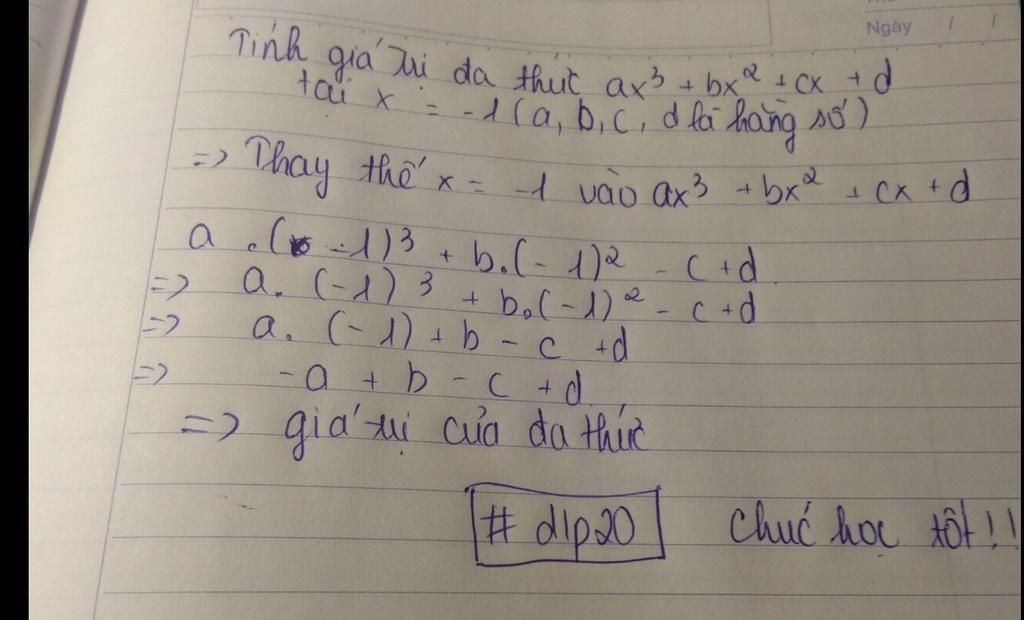 Ngày / /
Tính giá trị đa thức ax³ + bx² + cx + d
tại x = -1 (a, b, c, d là hằng số)
=> Thay thế x = -1 vào ax³ + bx² + cx + d
a . ( -1)³ + b.(-1)² - c + d
=> a. (-1)³ + b.(-1)² - c + d
=> a. (-1) + b - c + d
=> -a + b - c + d
=> giá trị của đa thức
# dlp20 Chúc học tốt!!